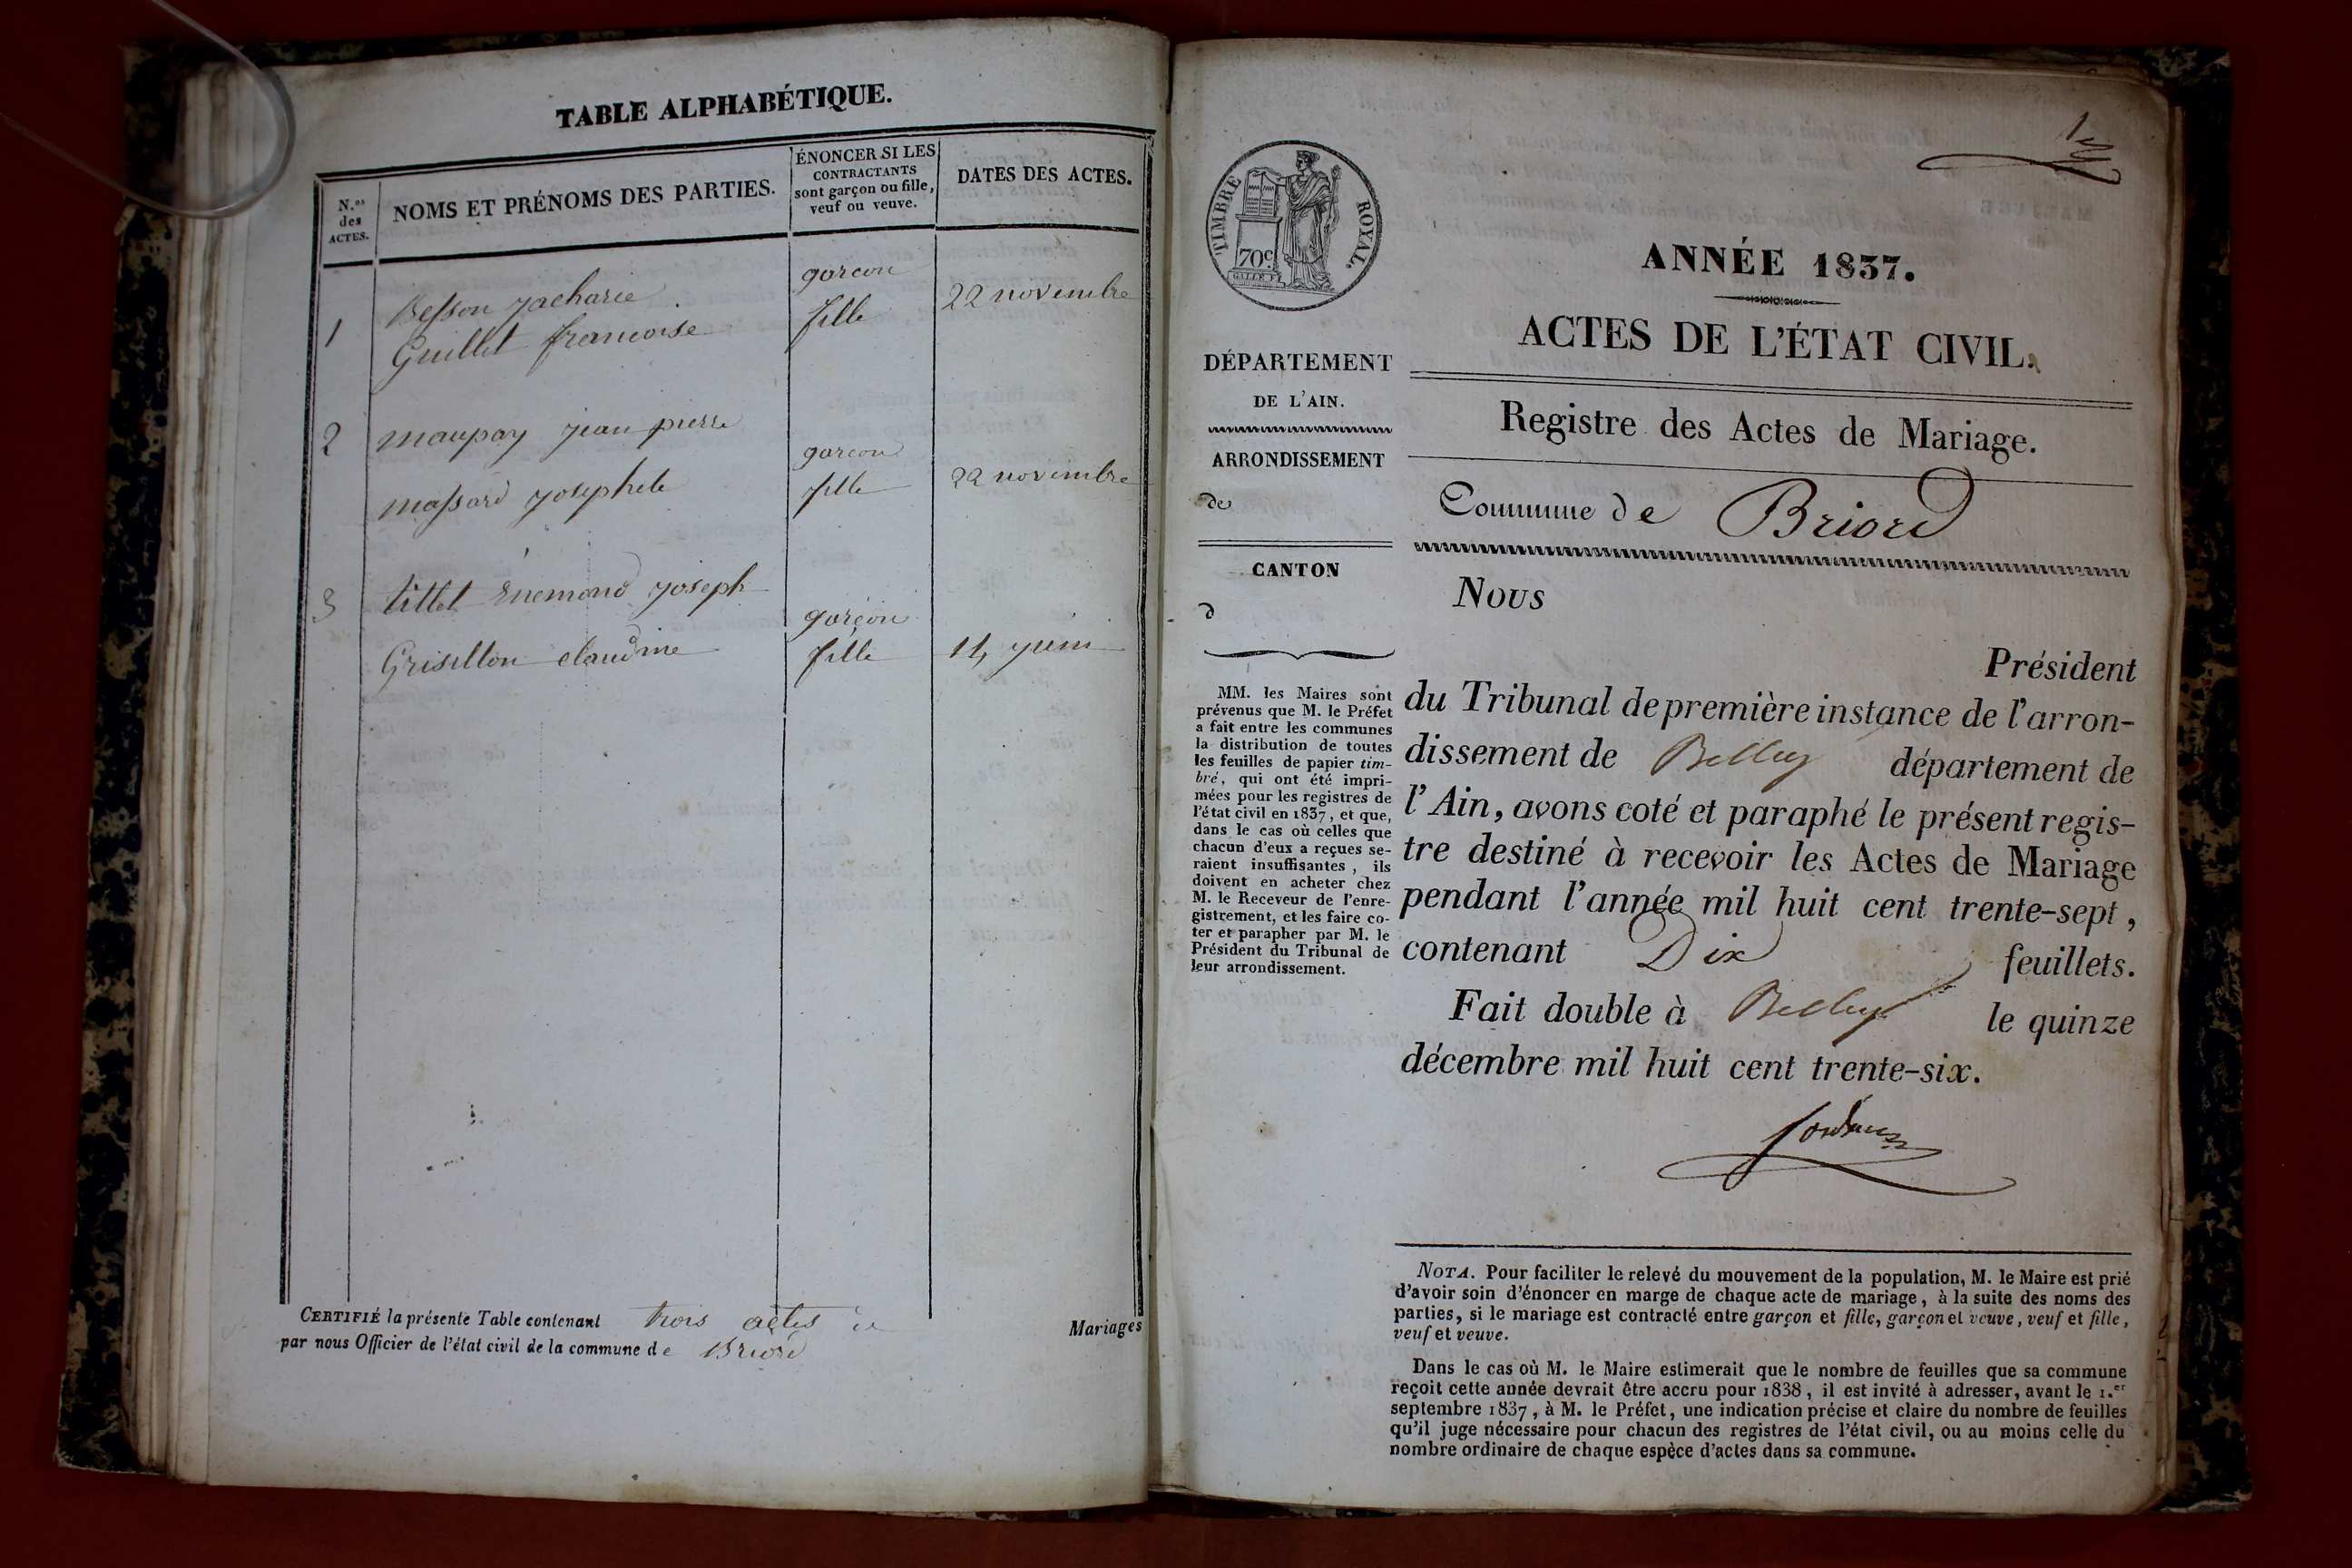 TABLE ALPHABÉTIQUE.
N.os des ACTES.
NOMS ET PRÉNOMS DES PARTIES.
ÉNONCER SI LES
CONTRACTANTS
sont garçon ou fille,
veuf ou veuve.
DATES DES ACTES.
1
Besson zacharie
garcon
22 novembre
Guillet francoise
fille
2
maupay jean pierre
garcon
22 novembre
massard josephete
fille
3
tittet Enemond joseph
garçon
Grisillon claudine
fille
14 juin
CERTIFIÉ la présente Table contenant trois actes de Mariages
par nous Officier de l'état civil de la commune de Briord
TIMBRE ROYAL.
70c.
ANNÉE 1837.
ACTES DE L'ÉTAT CIVIL.
Registre des Actes de Mariage.
Commune de Briord
DÉPARTEMENT
DE L'AIN.
ARRONDISSEMENT
de
CANTON
d
MM. les Maires sont
prévenus que M. le Préfet
a fait entre les communes
la distribution de toutes
les feuilles de papier tim-
bré, qui ont été impri-
mées pour les registres de
l'état civil en 1837, et que,
dans le cas où celles que
chacun d'eux a reçues se-
raient insuffisantes, ils
doivent en acheter chez
M. le Receveur de l'enre-
gistrement, et les faire co-
ter et parapher par M. le
Président du Tribunal de
leur arrondissement.
Nous
Président
du Tribunal de première instance de l'arron-
dissement de Belley département de
l'Ain, avons coté et paraphé le présent regis-
tre destiné à recevoir les Actes de Mariage
pendant l'année mil huit cent trente-sept,
contenant Dix feuillets.
Fait double à Belley le quinze
décembre mil huit cent trente-six.
NOTA. Pour faciliter le relevé du mouvement de la population, M. le Maire est prié
d'avoir soin d'énoncer en marge de chaque acte de mariage, à la suite des noms des
parties, si le mariage est contracté entre garçon et fille, garçon et veuve, veuf et fille,
veuf et veuve.
Dans le cas où M. le Maire estimerait que le nombre de feuilles que sa commune
reçoit cette année devrait être accru pour 1838, il est invité à adresser, avant le 1.er
septembre 1837, à M. le Préfet, une indication précise et claire du nombre de feuilles
qu'il juge nécessaire pour chacun des registres de l'état civil, ou au moins celle du
nombre ordinaire de chaque espèce d'actes dans sa commune.